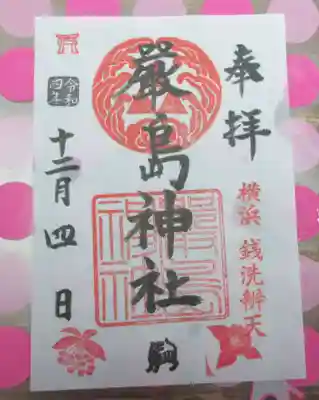 奉拝
横浜 銭洗辨天
嚴島神社
令和
四年
十二月四日